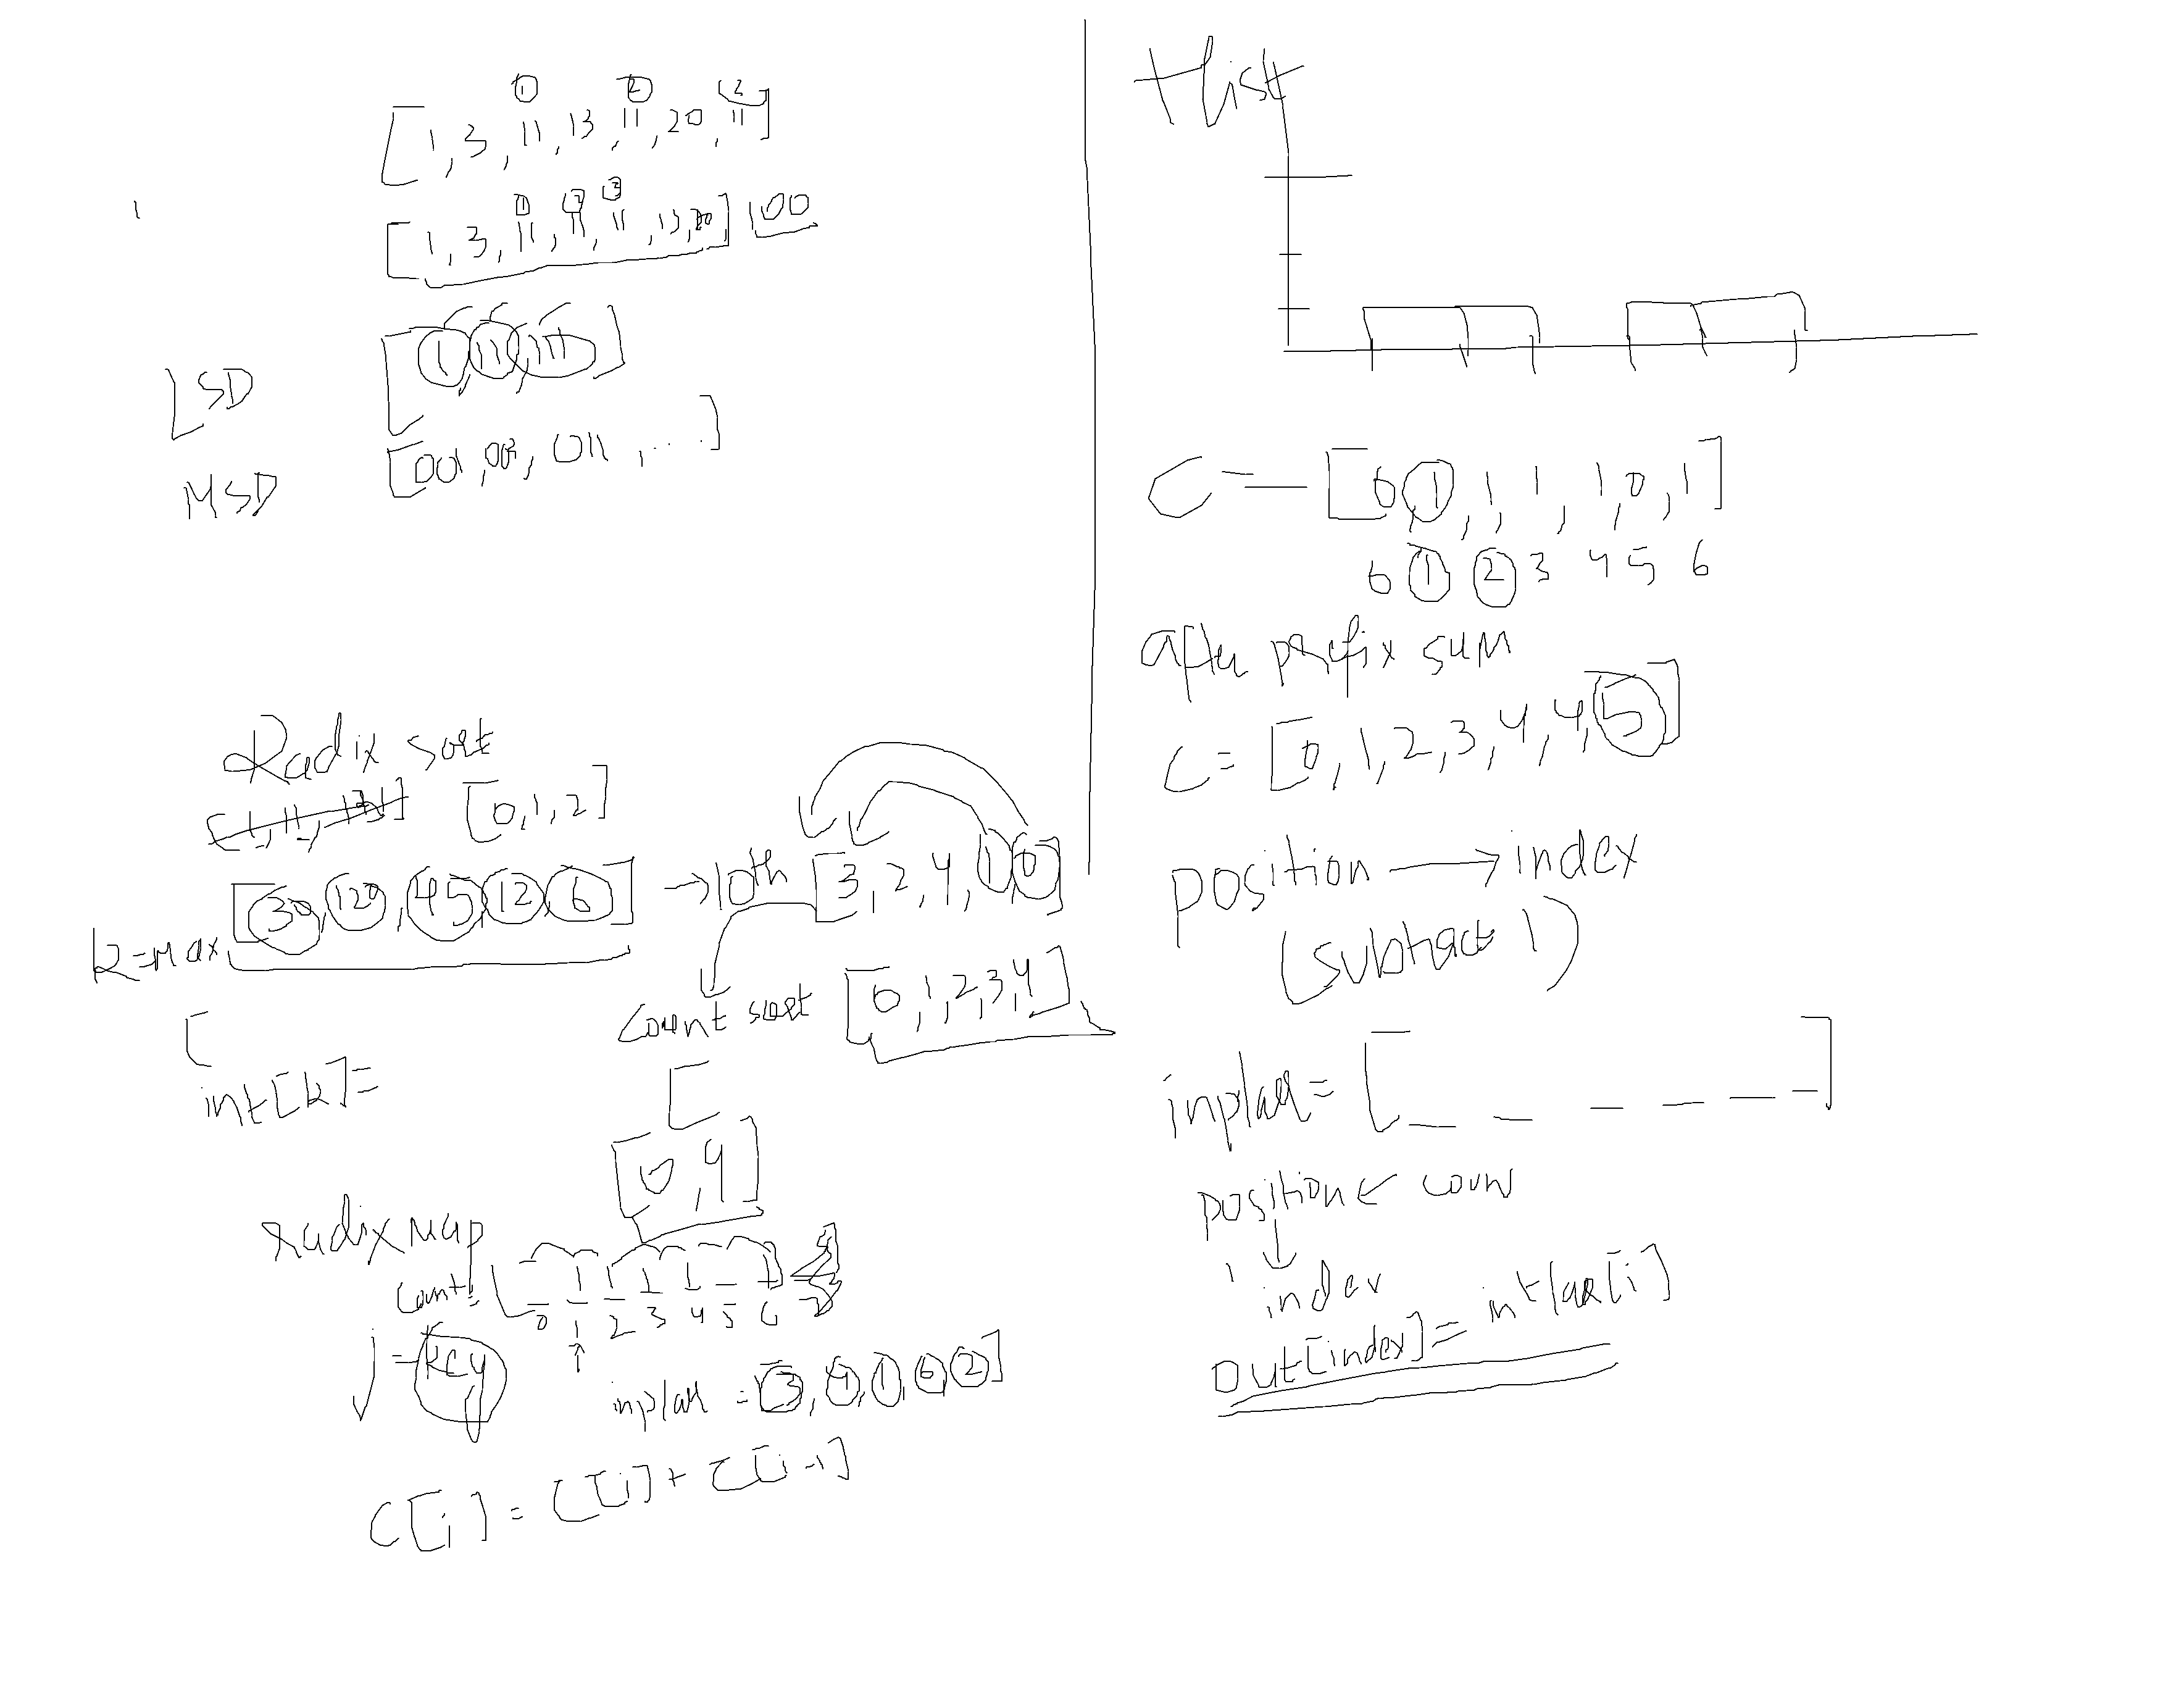 ① ② 3
[1, 3, 11, 13, 11, 20, 11]
① ② ③
[1, 3, 11, 11, 11, 13, 20] 100
[1, 11, 111]
LSD
[001, 003, 011, ...]
MSD
Radix sort
[0, 1, 2]
[30, 120, 45, 12, 6] → 10th [3, 2, 4, 1, 0]
k = max
[
count sort [0, 1, 2, 3, 4]
int[k] =
[
[0, 4]
radix map
count: [_ 1 1 1 1 _ 1]
0 1 2 3 4 5 6
↑
j = key
inp/arr = [3, 4, 1, 6, 2]
C[i] = C[i] + C[i-1]
Hist
C = [0, 1, 1, 1, 1, 0, 1]
0 1 2 3 4 5 6
after prefix sum
C = [0, 1, 2, 3, 4, 4, 5]
position → index
(subtract 1)
inp/arr = [_ _ _ _ _ _]
position ← coun
↓
index
out[index] = int/arr[i]